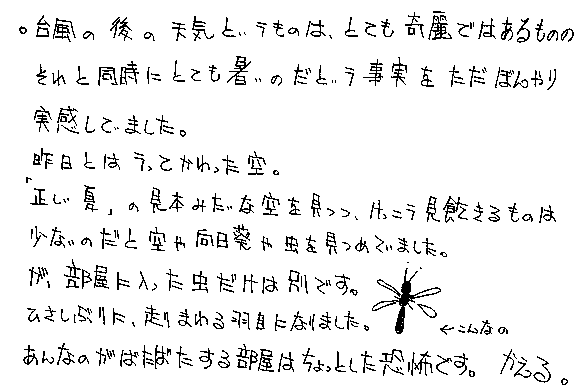 。台風の後の天気というものは、とても奇麗ではあるものの
それと同時にとても暑いのだという事実をただぼんやり
実感していました。
昨日とはうってかわった空。
「正しい夏」の見本みたいな空を見つつ、けっこう見飽きるものは
少ないのだと空や向日葵や虫を見つめていました。
が、部屋に入った虫だけは別です。
ひさしぶりに、走りまわる羽目になりました。
←こんなの
あんなのがばたばたする部屋はちょっとした恐怖です。 かえる。